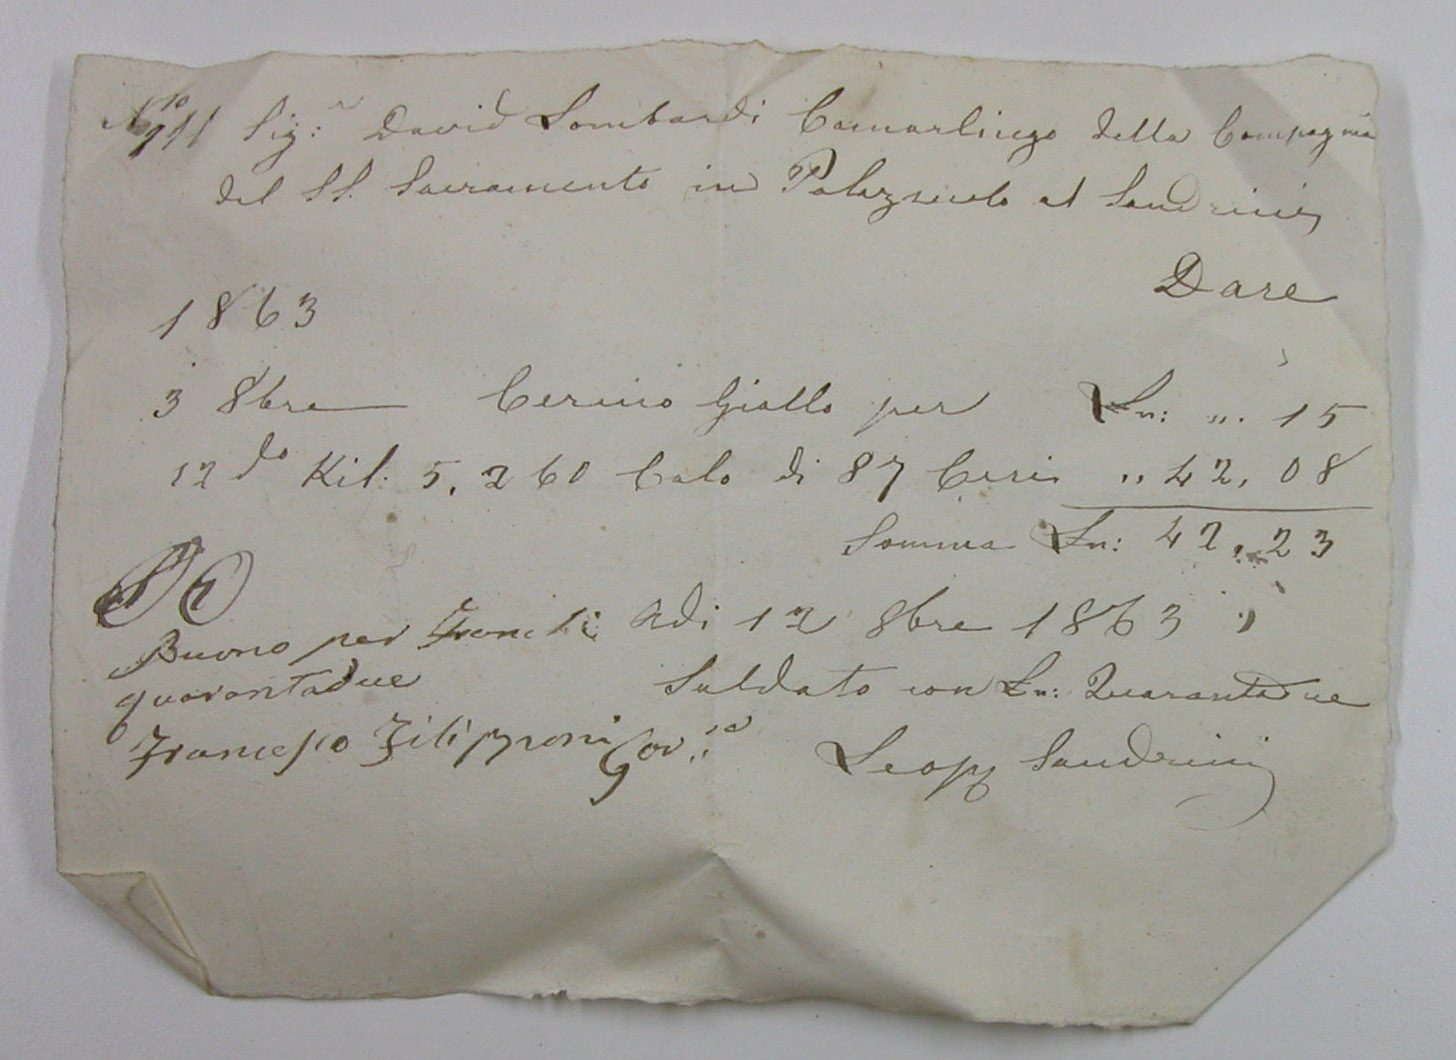 Nº 11 Sig.r David Lombardi Camarlingo della Compagnia
del SS. Sacramento in Palazzuolo al Sandrini
Dare
1863
3 8bre Cerino Giallo per Ln: ,, . 15
12 do Kil: 5,260 Calo di 87 Ceri ,, 42,08
Somma Ln: 42,23
Adi 12 8bre 1863
Saldato con Ln: Quarantadue
Leopo Sandrini
Buono per Franchi
quarantadue
Francesco Filipponi Gov.